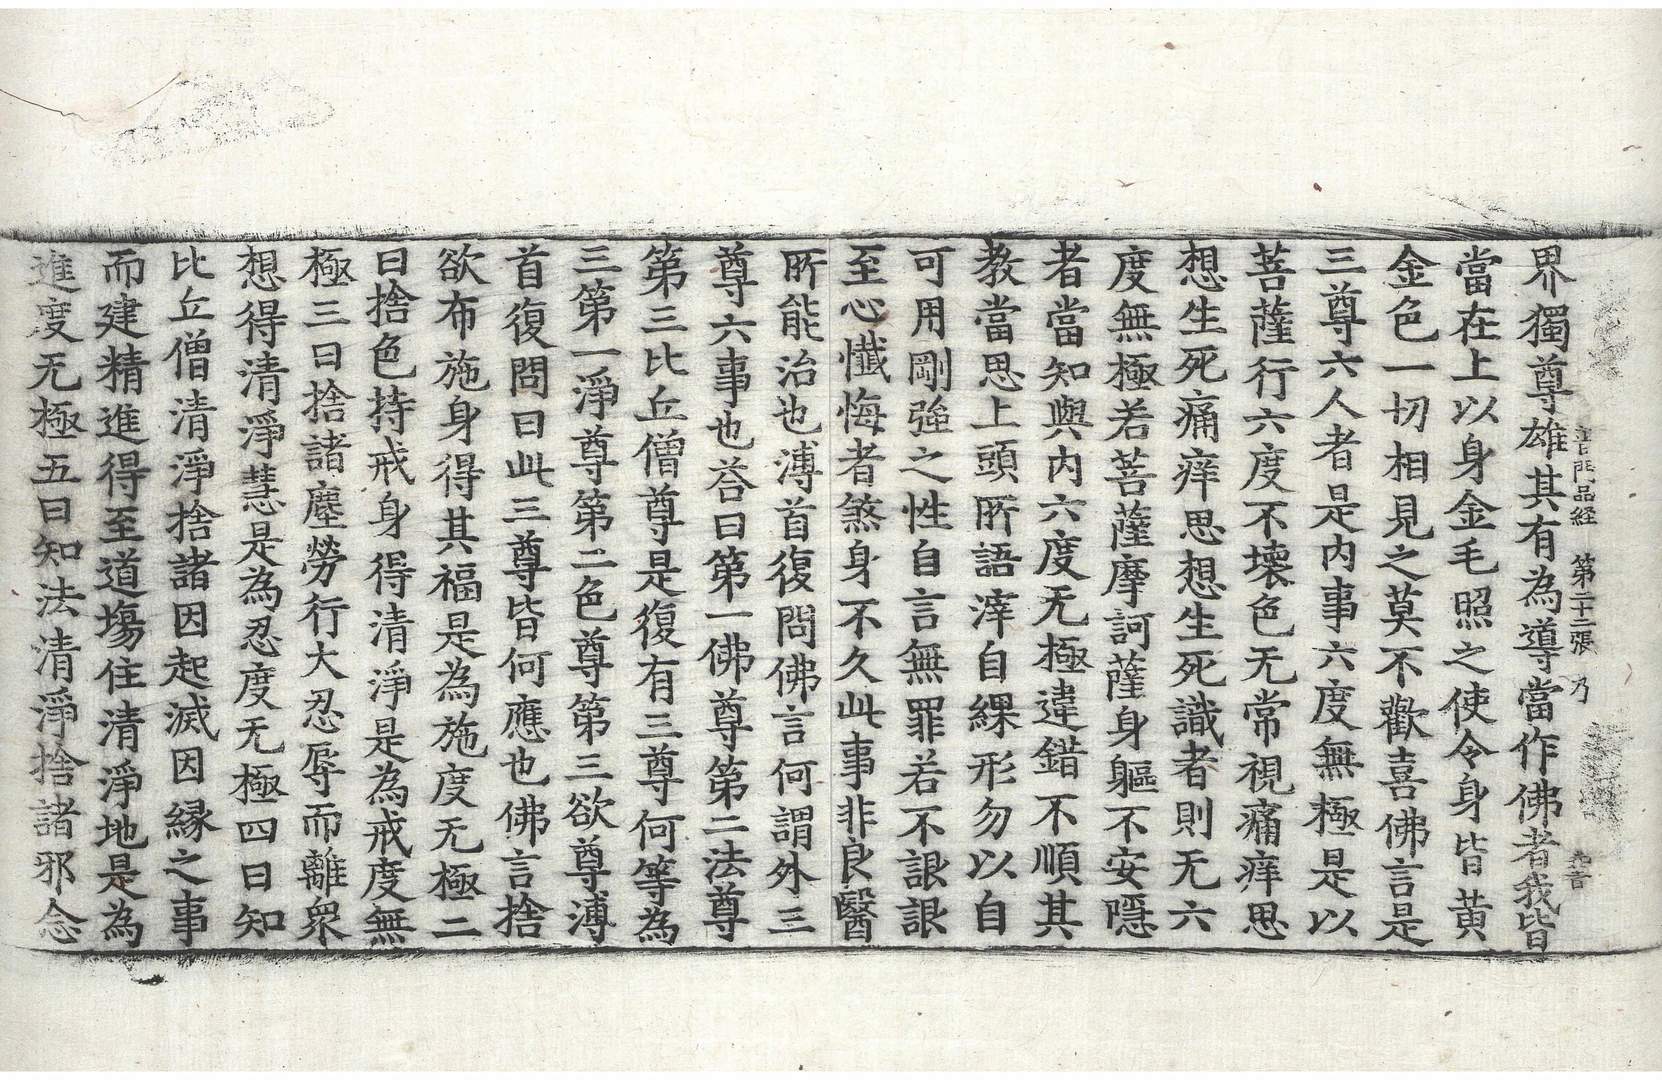 界獨尊雄其有為導當作佛者我皆
當在上以身金毛照之使令身皆黃
金色一切相見之莫不歡喜佛言是
三尊六人者是内事六度無極是以
菩薩行六度不壞色无常視痛痒思
想生死痛痒思想生死識者則无六
度無極若菩薩摩訶薩身軀不安隱
者當知與内六度无極違錯不順其
教當思上頭所語滓自緤形勿以自
可用剛強之性自言無罪若不詪詪
至心懺悔者煞身不久此事非良醫
所能治也溥首復問佛言何謂外三
尊六事也荅曰第一佛尊第二法尊
第三比丘僧尊是復有三尊何等為
三第一淨尊第二色尊第三欲尊溥
首復問曰此三尊皆何應也佛言捨
欲布施身得其福是為施度无極二
曰捨色持戒身得清淨是為戒度無
極三曰捨諸塵勞行大忍辱而離衆
想得清淨慧是為忍度无極四曰知
比丘僧清淨捨諸因起滅因縁之事
而建精進得至道場住清淨地是為
進度无極五曰知法清淨捨諸邪念
普門品経 第二十二張 乃